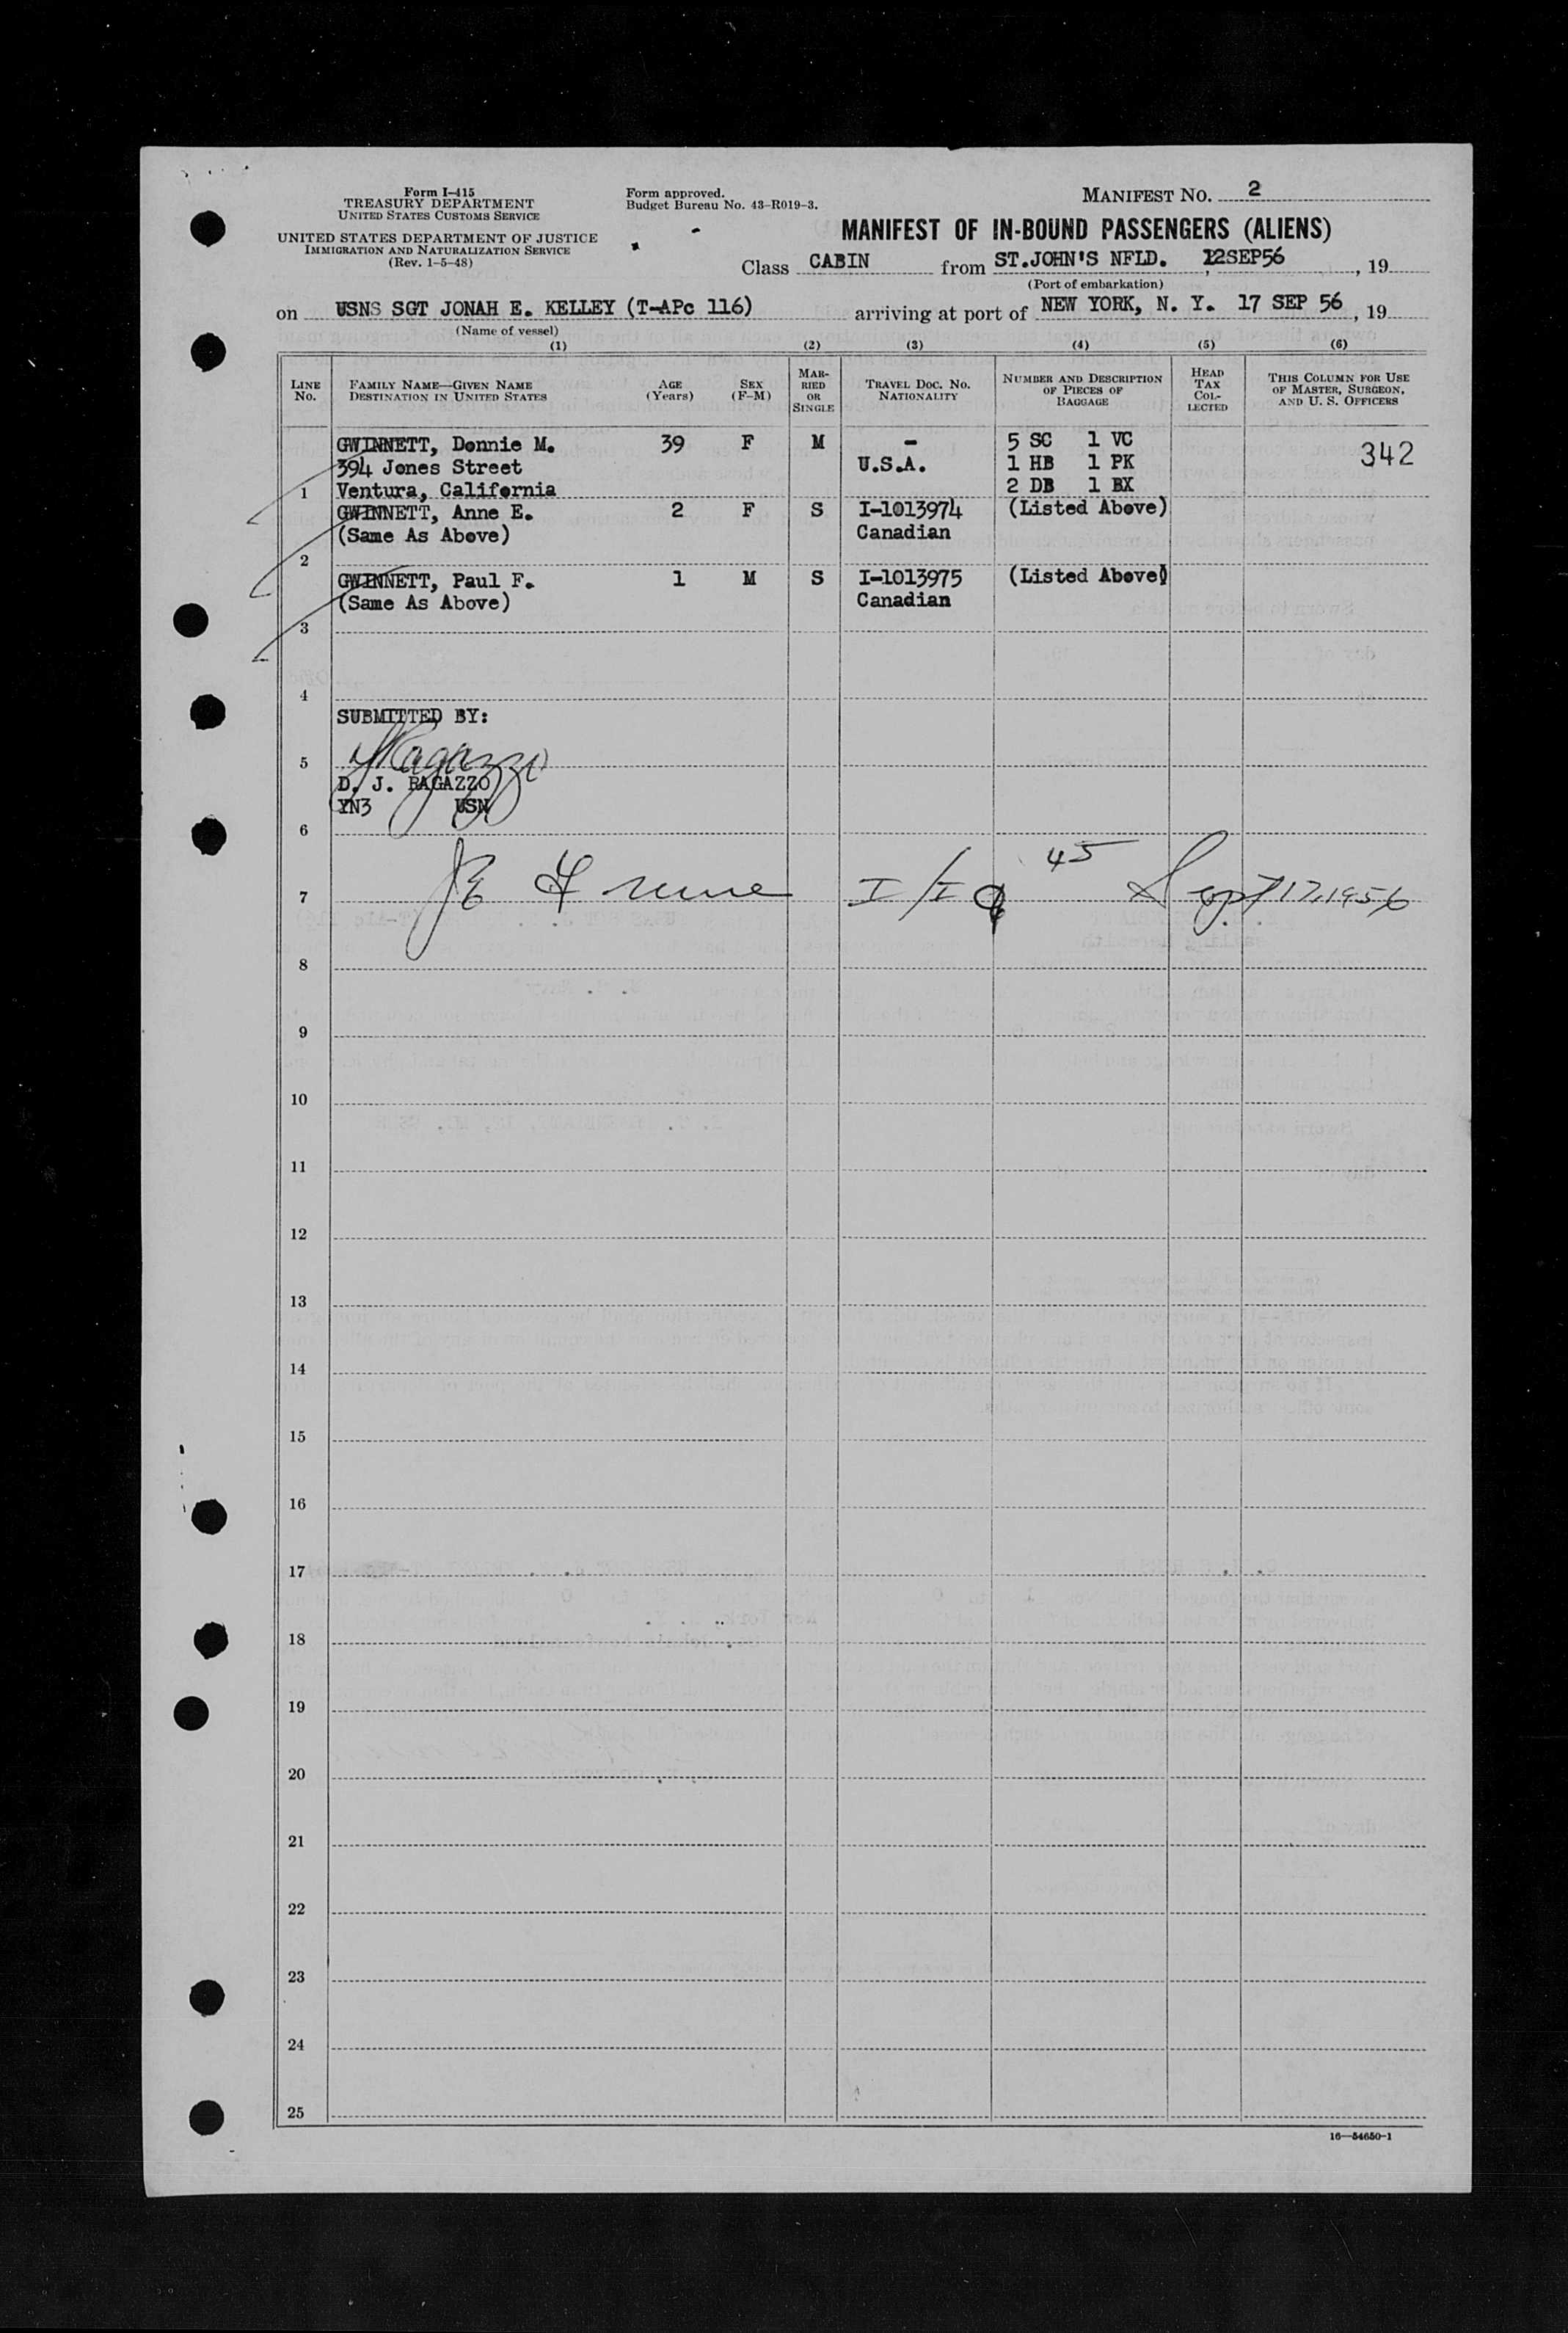 Form I-415
TREASURY DEPARTMENT
UNITED STATES CUSTOMS SERVICE
UNITED STATES DEPARTMENT OF JUSTICE
IMMIGRATION AND NATURALIZATION SERVICE
(Rev. 1-5-48)
Form approved.
Budget Bureau No. 43-R019-3.
MANIFEST NO. 2
MANIFEST OF IN-BOUND PASSENGERS (ALIENS)
Class CABIN from ST.JOHN'S NFLD. , 12SEP56 , 19
(Port of embarkation)
on USNS SGT JONAH E. KELLEY (T-APc 116) arriving at port of NEW YORK, N. Y. 17 SEP 56 , 19
(Name of vessel)
(1) (2) (3) (4) (5) (6)
LINE No. FAMILY NAME—GIVEN NAME DESTINATION IN UNITED STATES AGE (Years) SEX (F-M) MARRIED OR SINGLE TRAVEL DOC. NO. NATIONALITY NUMBER AND DESCRIPTION OF PIECES OF BAGGAGE HEAD TAX COLLECTED THIS COLUMN FOR USE OF MASTER, SURGEON, AND U. S. OFFICERS
GWINNETT, Donnie M. 39 F M - 5 SC 1 VC 342
394 Jones Street U.S.A. 1 HB 1 PK
1 Ventura, California 2 DB 1 BX
GWINNETT, Anne E. 2 F S I-1013974 (Listed Above)
(Same As Above) Canadian
2
GWINNETT, Paul F. 1 M S I-1013975 (Listed Above)
(Same As Above) Canadian
3
4
SUBMITTED BY:
5 Ragazzo
D. J. RAGAZZO
YN3 USN
6
7 45 Sept 17, 1956
8
9
10
11
12
13
14
15
16
17
18
19
20
21
22
23
24
25
16—54650-1